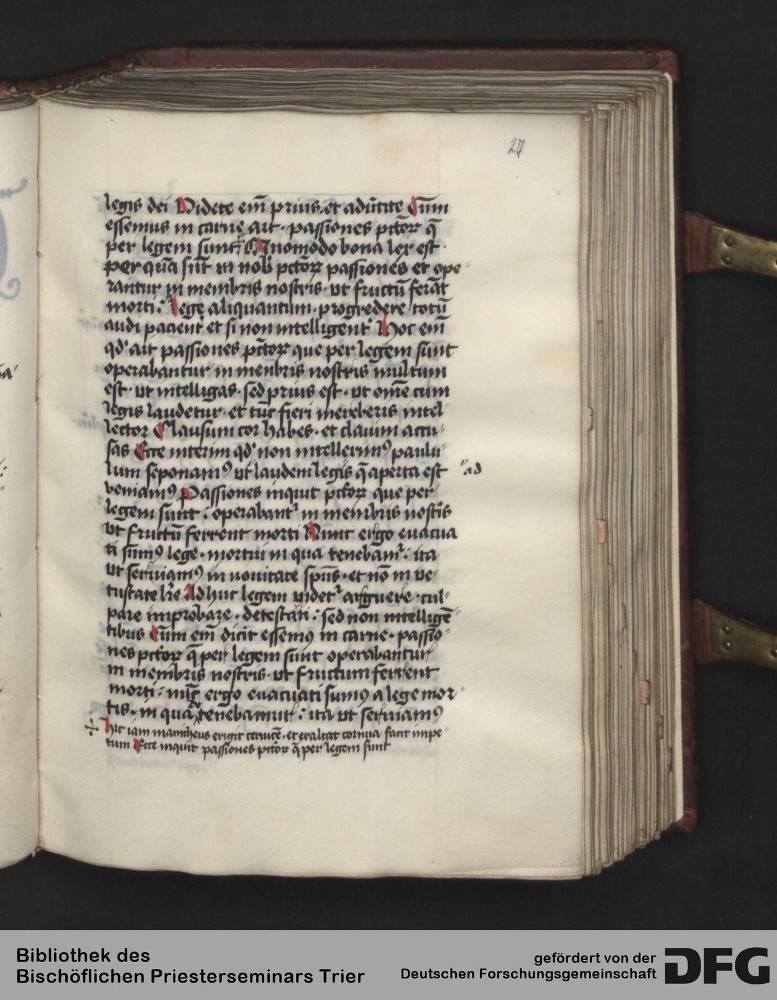 27
legis dei Videte em̄ prius. et aduītite Cum
essemus in carne ait · passiones pctoꝝ q̄
per legem sunt Quomodo bona lex est ·
per quā sūt in nob̄ pctoꝝ passiones et ope
rantur in membris nostris · ut fructū ferāt
morti Lege aliquantum · progredere totū
audi pacient᷑ et si non intelligent᷑ Hoc em̄
qd' ait passiones pctoꝝ que per legem sunt
operabantur in menbris nostris multum
est · ut intelligas · sed prius est · ut ome cum
legis laudetur · et tūc fieri mereberis intel
lector Clausum cor habes · et clauim accu
sas Ecce interim qd' non intellerimꝰ paulu
lum seponamꝰ ut laudem legis q̄ aperta est
ad
veniamꝰ Passiones inquit pctoꝝ que per
legem sunt : operabant᷑ in membris nostris
ut fructū ferrent morti Nunc ergo euacua
ti sumꝰ lege · mortui in qua tenebam᷑ : ita
ut seruiamꝰ in nouitate spūs · et nō in ve
tustate lr̄e Adhuc legem videt᷑ arguere · cul
pare improbare · detestari : sed non intelligē
tibus Cum em̄ dicit essemꝰ in carne · passio
nes pctoꝝ q̄ per legem sunt operabantur
in membris nostris · ut fructum ferrent
morti : nūc ergo euacuati sumꝰ a lege mor
tis · in qua tenebamur : ita ut seruiamꝰ
Hic iam manicheus erigit ceruicē · et exaltat cornua facit impe
tum Ecce inquit passiones pctoꝝ q̄ per legem sunt
Bibliothek des
Bischöflichen Priesterseminars Trier
gefördert von der
Deutschen Forschungsgemeinschaft
DFG